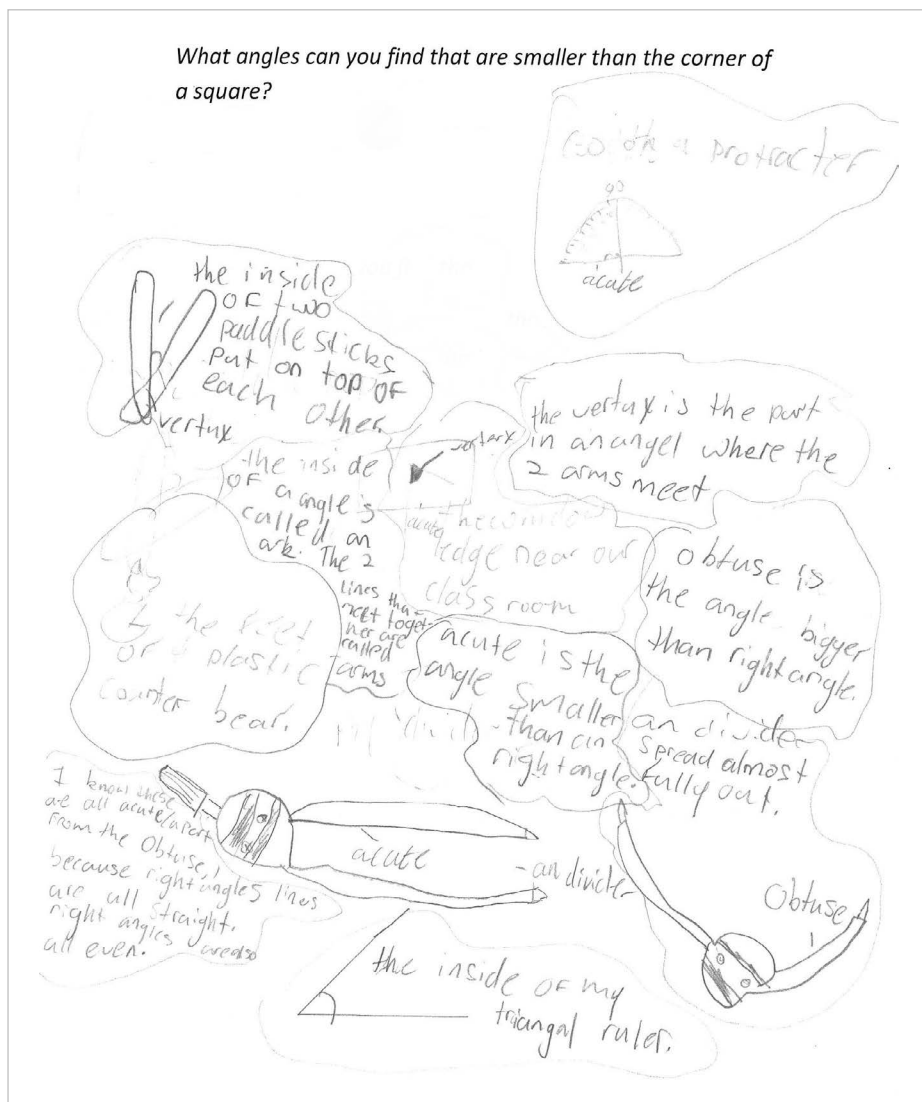 What angles can you find that are smaller than the corner of
a square?
a protracter
90
acute
the inside
of two
paddle sticks
put on top of
each other.
vertux
the vertux is the part
in an angel where the
2 arms meet
vertux
the inside
of a angle is
called an
ark. The 2
lines that
meet toget
her are
called
arms
acute
the window
ledge near our
class room
obtuse is
the angle bigger
than right angle.
the feet
of a plastic
counter bear.
acute is the
angle smaller
than an
right angle.
an divider
spread almost
fully out.
I know these
are all acute/apart
from the Obtuse,
because right angles lines
are all straight.
right angles are also
all even.
acute
an divider
Obtuse
the inside of my
triangal ruler.